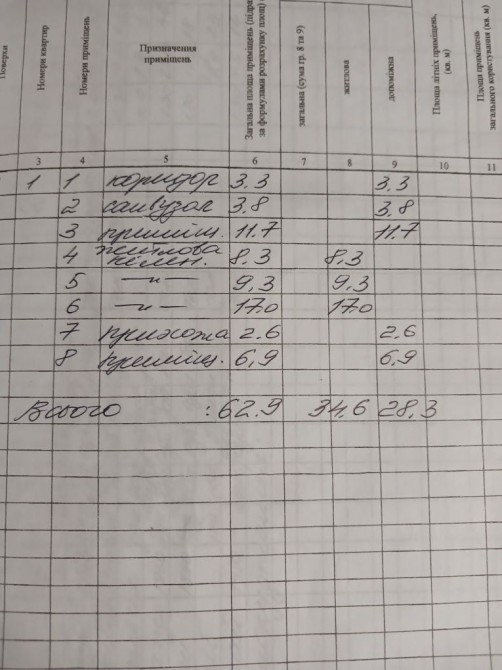 Поверхи
Номери квартир
Номери приміщень
Призначення
приміщень
Загальна площа приміщень
за формулами розрахунку площ)
загальна (сума гр. 8 та 9)
житлова
допоміжна
Площа літніх приміщень,
(кв. м)
Площа приміщень
загального користування (кв. м)
3 4 5 6 7 8 9 10 11
1 1 коридор 3.3 3.3
2 санвузол 3.8 3.8
3 приміщ. 11.7 11.7
4 житлова кімн. 8.3 8.3
5 —"— 9,3 9.3
6 —"— 17.0 17.0
7 прихожа 2.6 2.6
8 приміщ. 6,9 6,9
Всього : 62.9 34.6 28.3